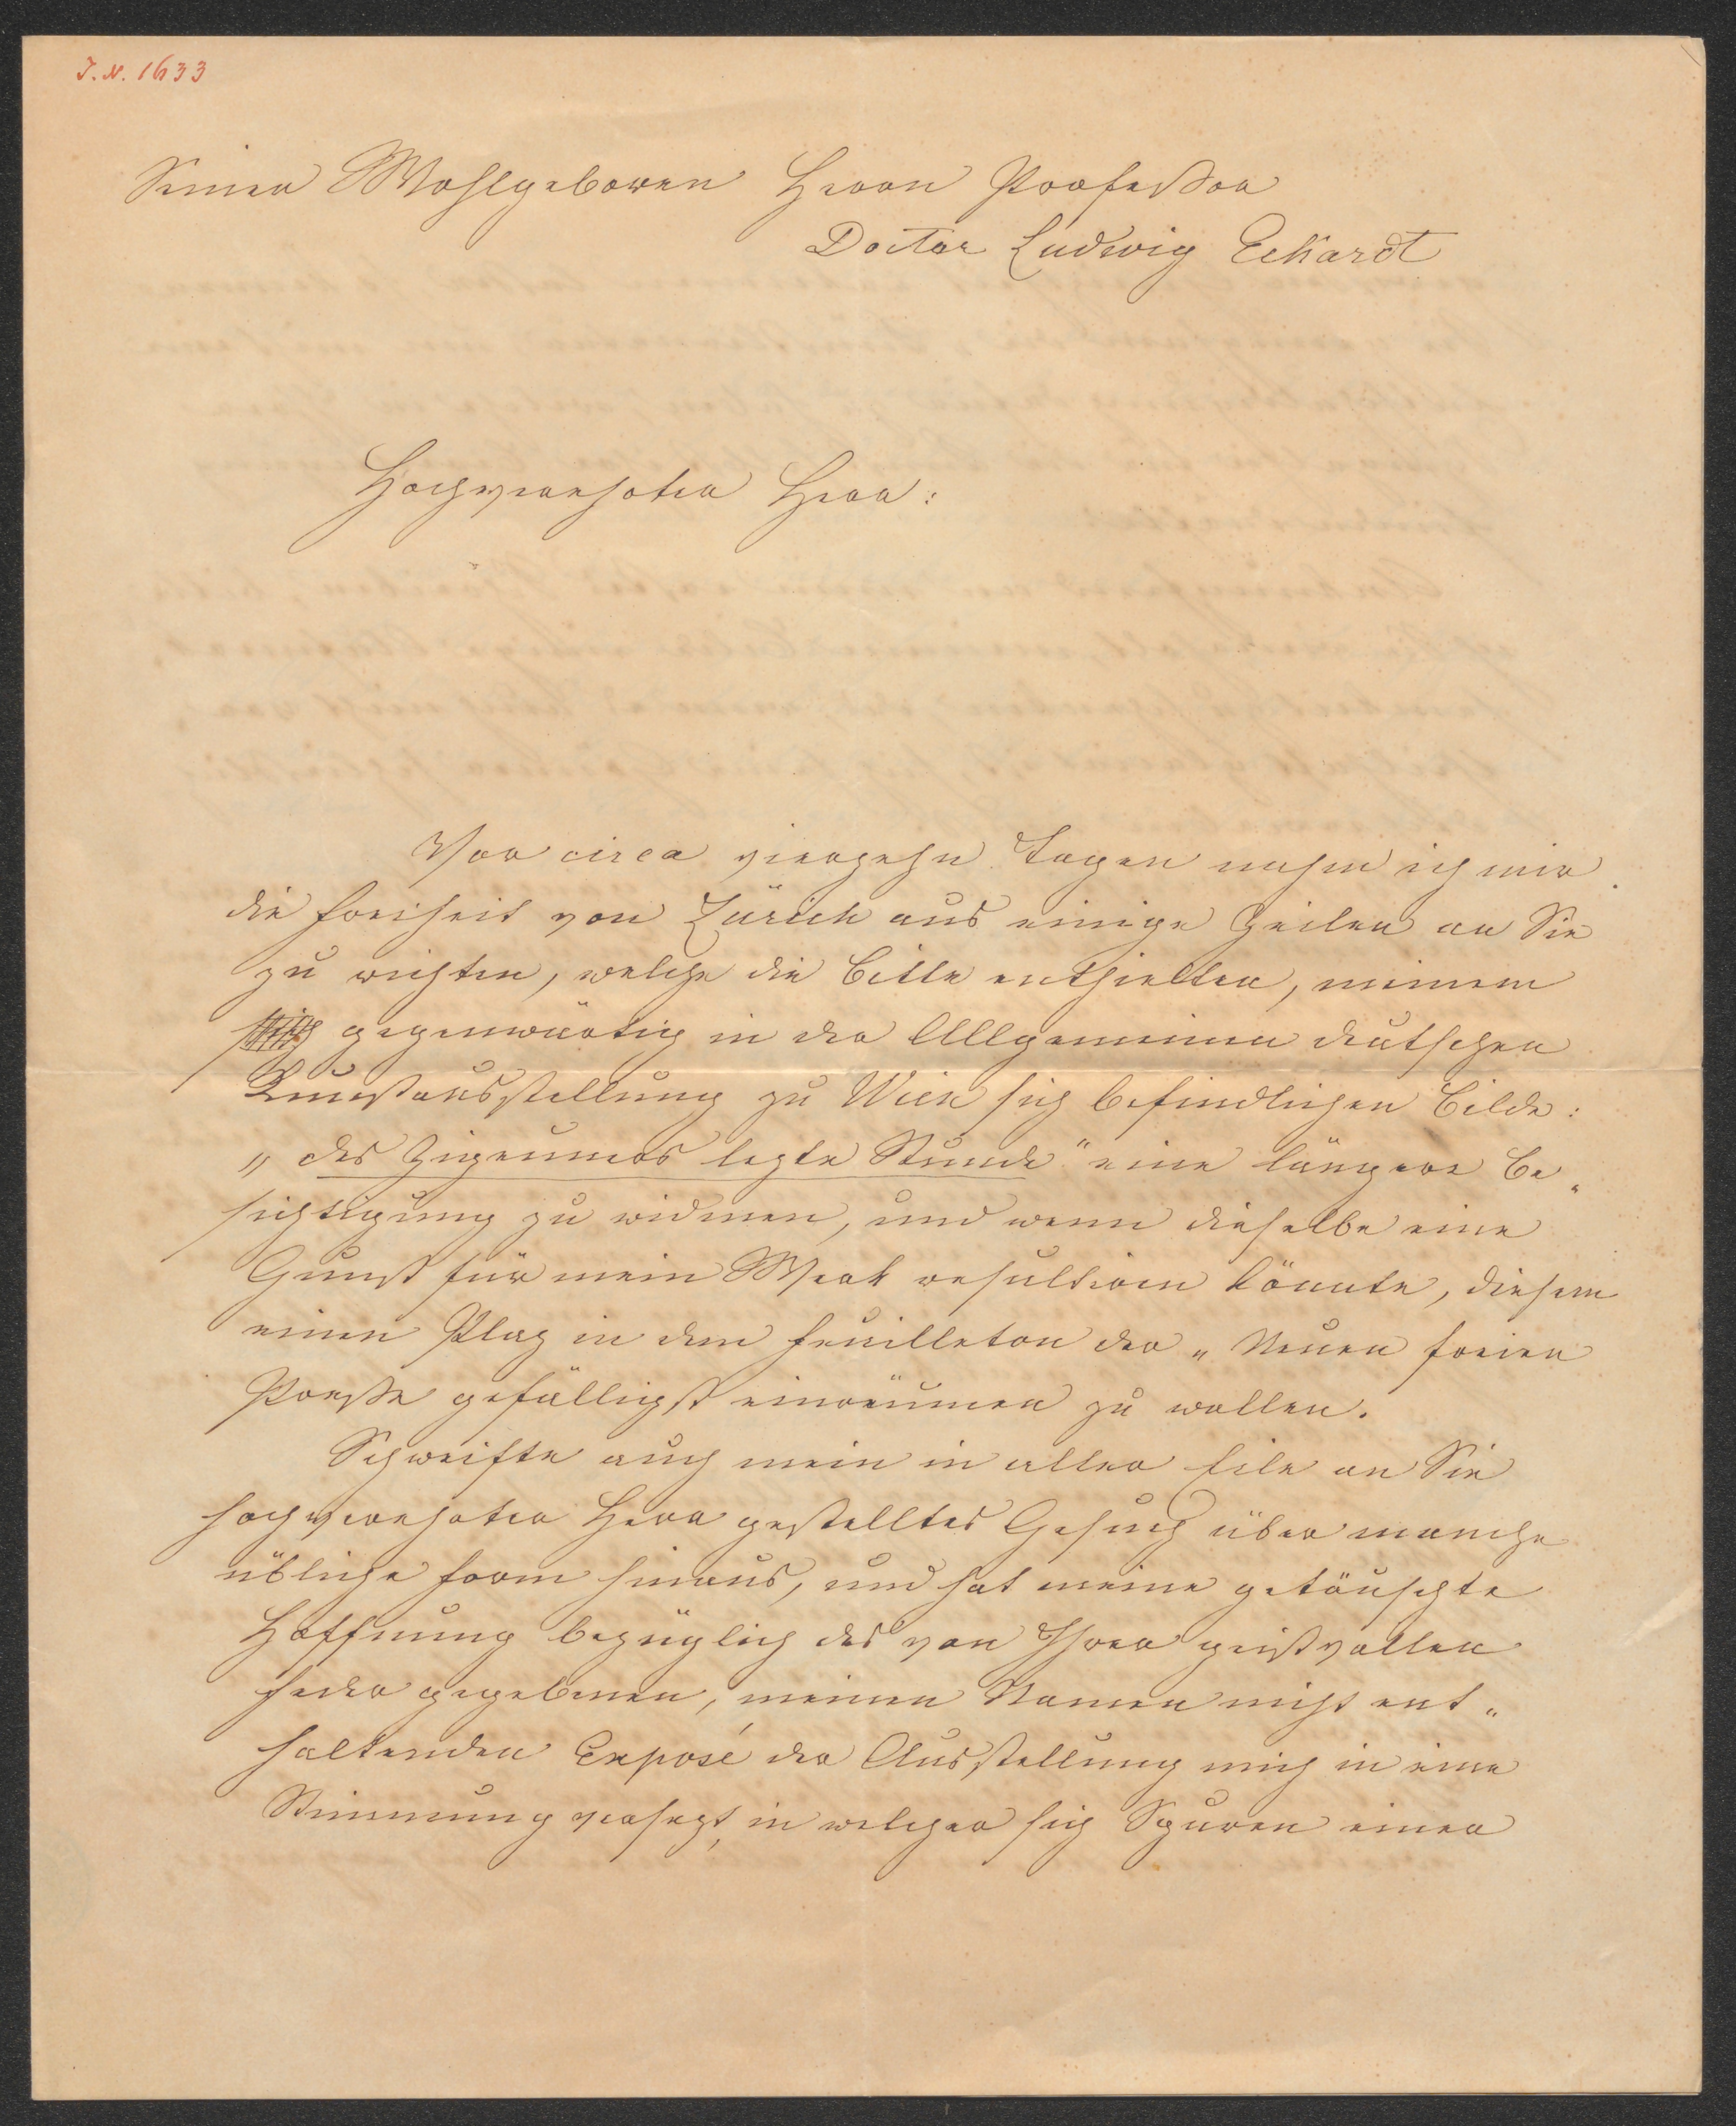 J. N. 1633
Seiner Wohlgeboren Herrn Professor
Doctor Ludwig Eckardt
Hochverehrter Herr:
Vor circa vierzehn Tagen nahm ich mir
die Freiheit von Zürich aus einige Zeilen an Sie
zu richten, welche die Bitte enthielten, meinem
gegenwärtig in der Allgemeinen deutschen
Kunstausstellung zu Wien sich befindlichen Bilde:
„des Zigeuners letzte Stunde" eine längere Be„
sichtigung zu widmen, und wenn dieselbe eine
Gunst für mein Werk resultiren könnte, diesem
einen Platz in dem Feuilleton der „Neuen freien
Presse gefälligst einräumen zu wollen.
Schweifte auch mein in aller Eile an Sie
hochverehrter Herr gestelltes Gesuch über manche
übliche Form hinaus, und hat meine getäuschte
Hoffnung bezüglich des von Ihrer geistvollen
Feder gegebenen, meinen Namen nicht ent„
haltenden Exposé der Ausstellung mich in eine
Stimmung versetzt, in welcher sich Spuren einer